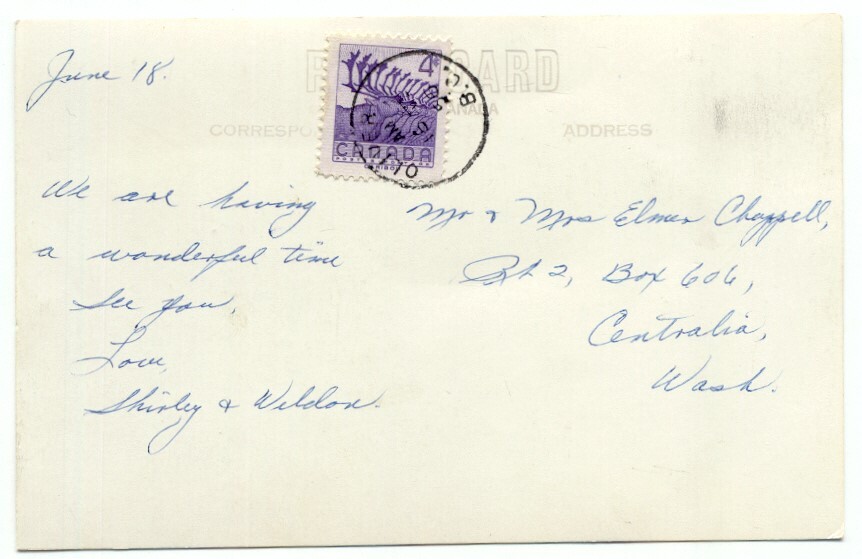 June 18.
POST CARD
CANADA
CORRESPO
ADDRESS
4¢
CANADA
B.C.
We are having
a wonderful time
See you,
Love,
Shirley & Weldon.
Mr & Mrs Elmer Chappell,
Rt 2, Box 606,
Centralia,
Wash.